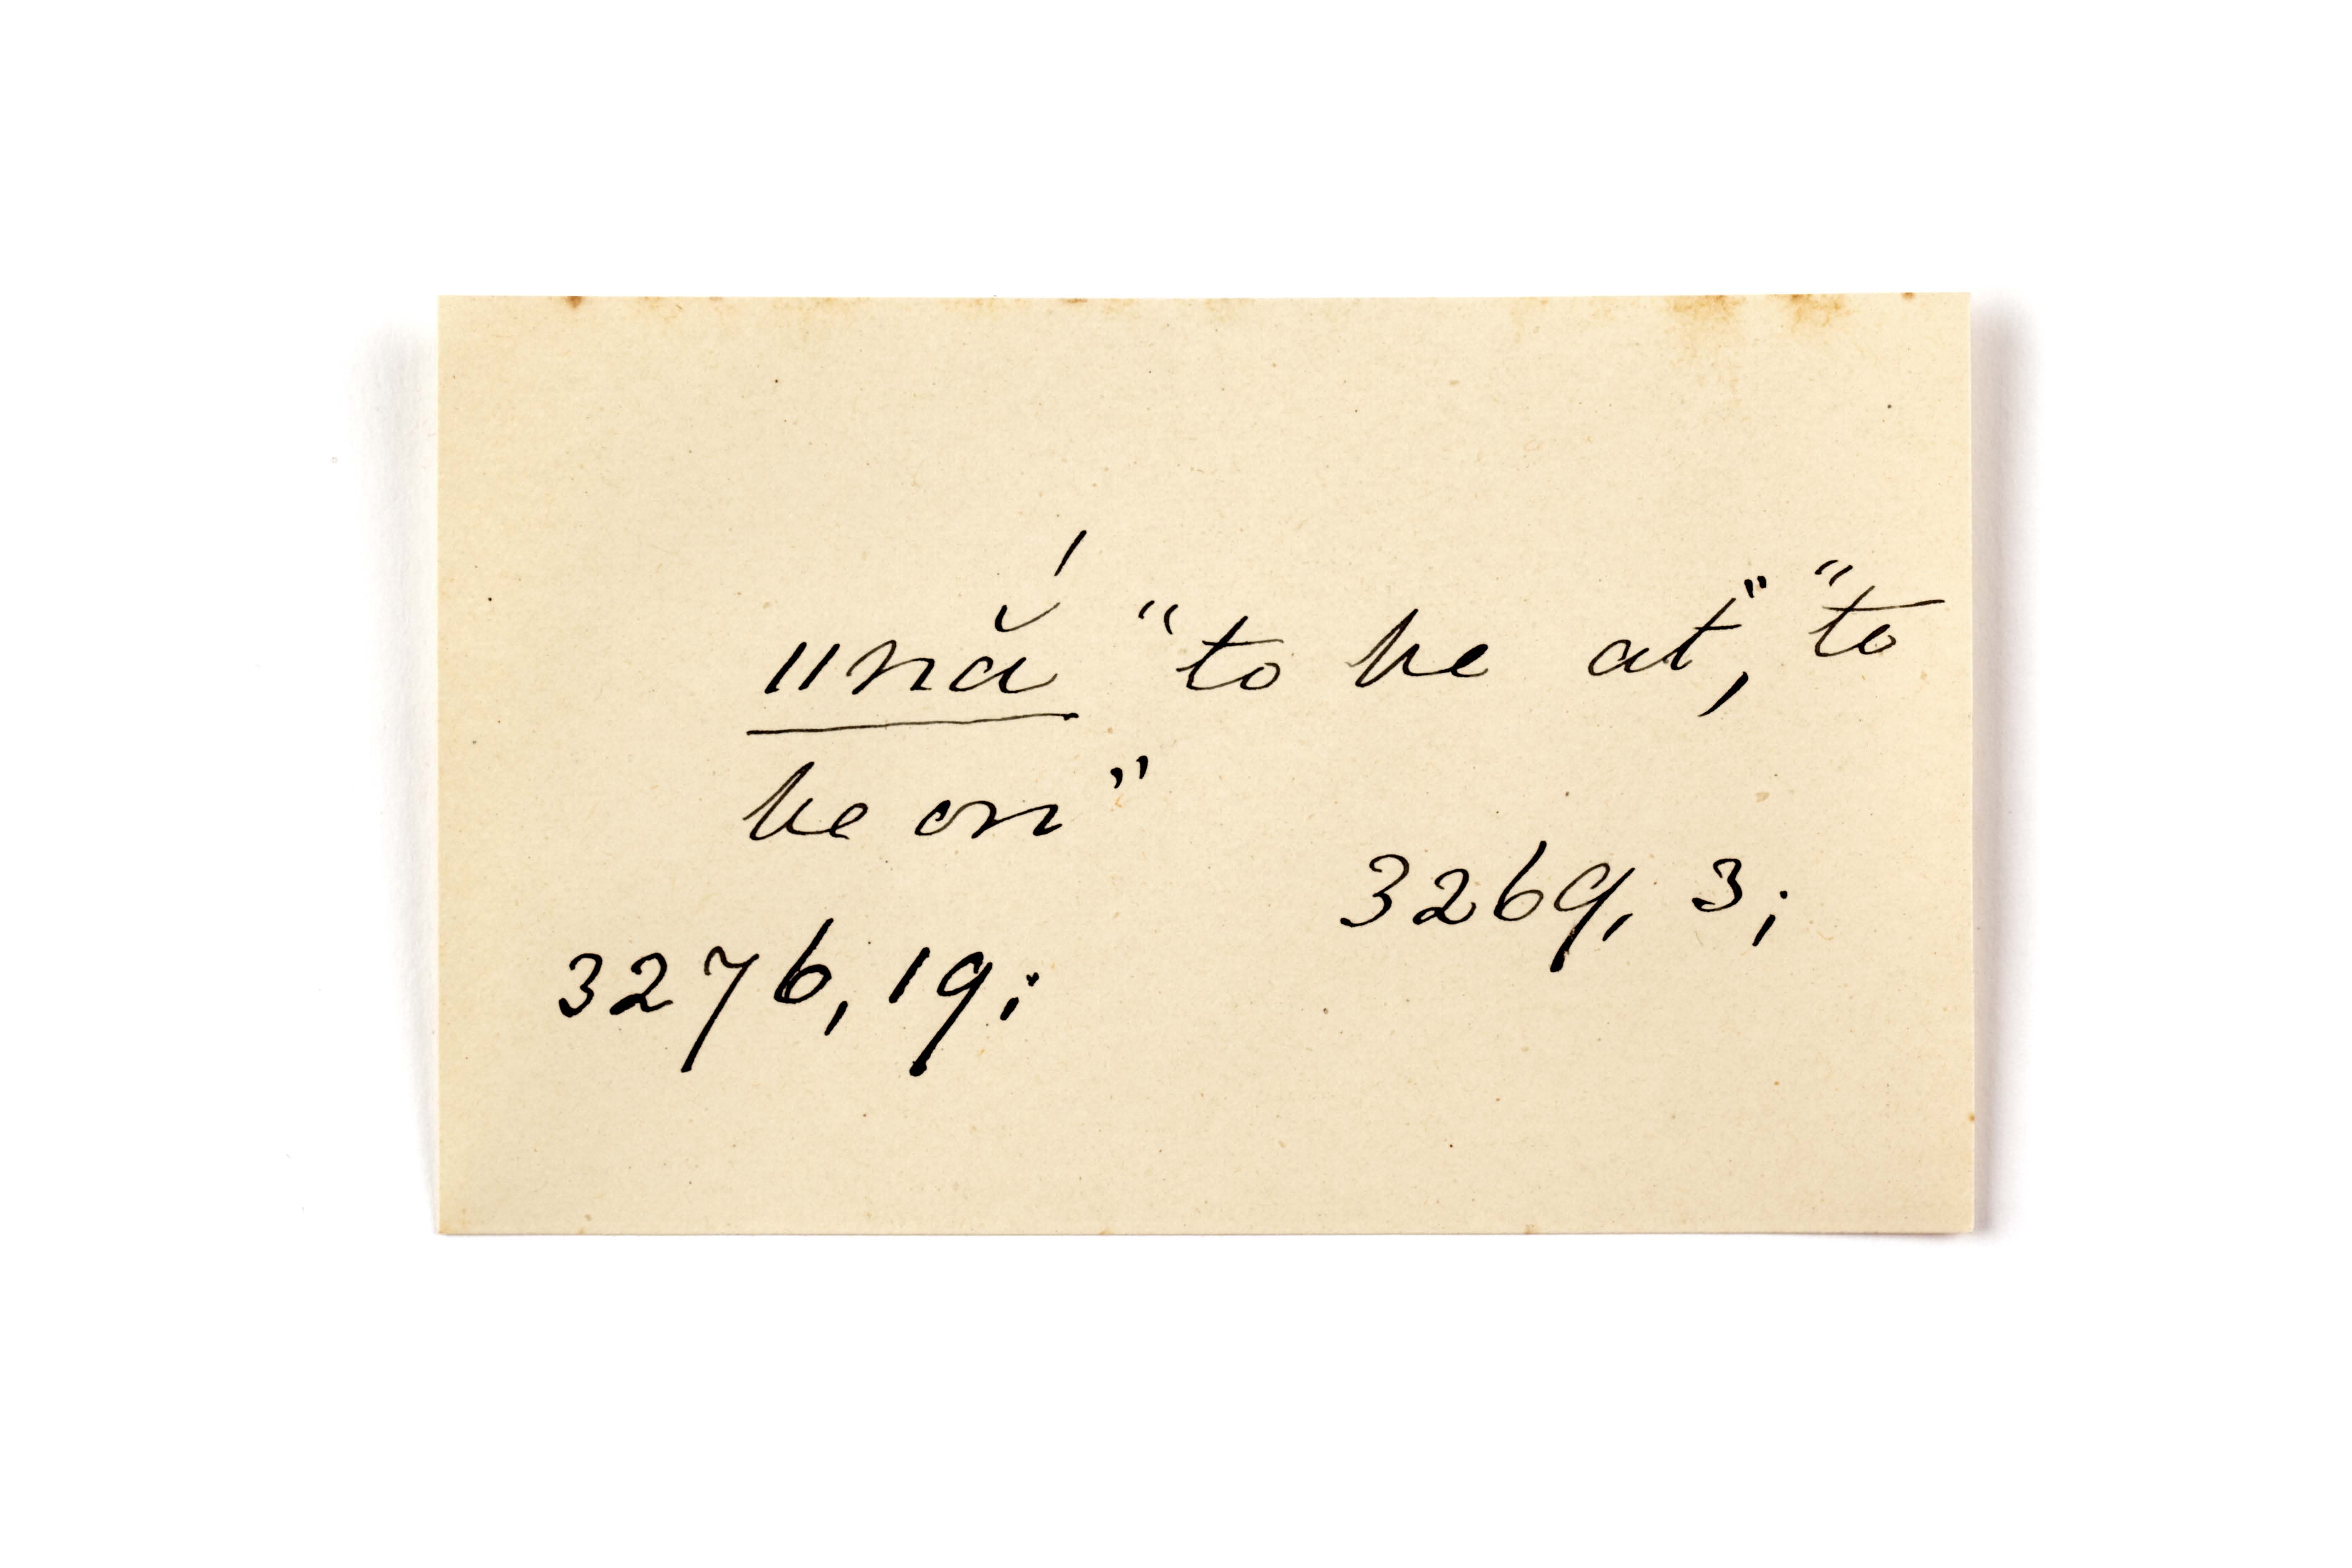 ǁnắ "to be at," "to
be on"
3269, 3;
3276, 19;